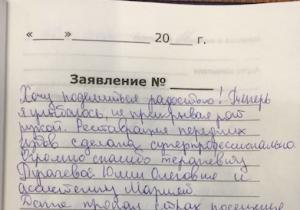 «____»____________ 20____ г.
Заявление № ______
Хочу поделиться радостью! Теперь
я улыбаюсь, не прикрывая рот
рукой. Реставрация передних
зубов сделана суперпрофессионально.
Огромное спасибо терапевту
Юлии Олеговне и
ассистенту Марией
Даже пропал страх посещение